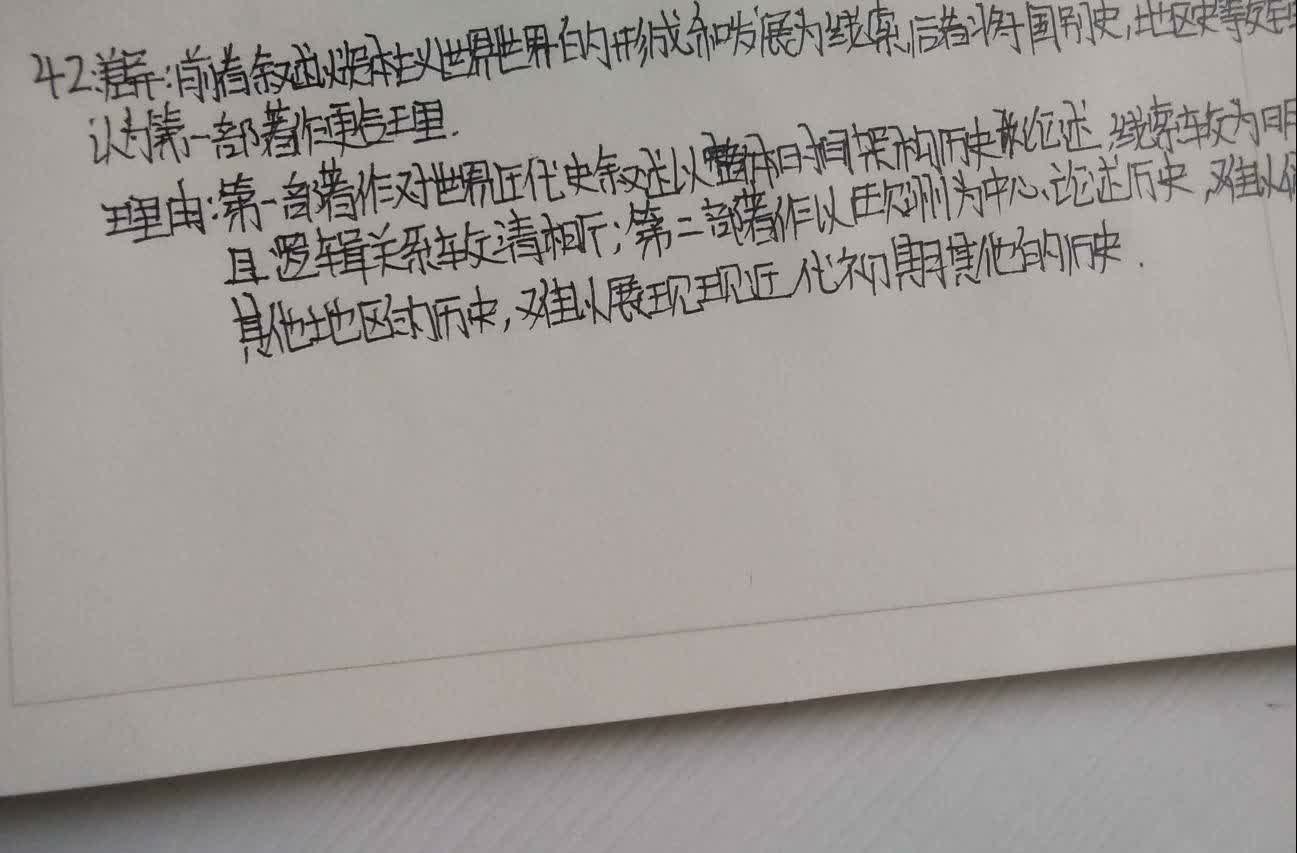 42.差异:前者叙述以资本主义世界世界的形成和发展为线索,后者将国别史,地区史等
认为第一部著作更合理.
理由:第一部著作对世界近代史叙述以整体时间架构历史论述,线索较为明
且逻辑关系较清晰;第二部著作以欧洲为中心、论述历史,难以
其他地区的历史,难以展现现近代初期其他的历史.